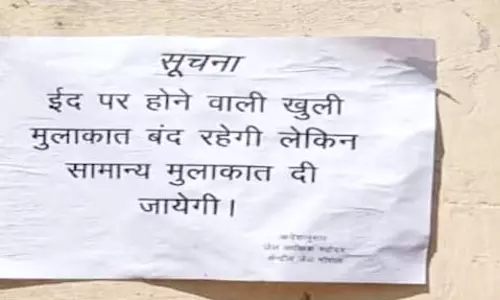 सूचना
ईद पर होने वाली खुली
मुलाकात बंद रहेगी लेकिन
सामान्य मुलाकात दी
जायेगी।
आदेशानुसार
जेल अधीक्षक महोदय
सेन्ट्रल जेल भोपाल